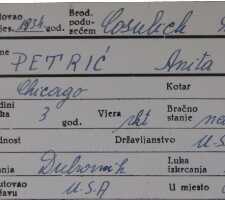 tovao jes. 1934 god. Brod. podu-zećem Cosulich
me PETRIĆ Anita
Chicago Kotar
dini ka 3 god. Vjera rkt Bračno stanje ne
nost Državljanstvo U.S
anja Dubrovnik Luka iskrcanja
utovao žavu USA U mjesto